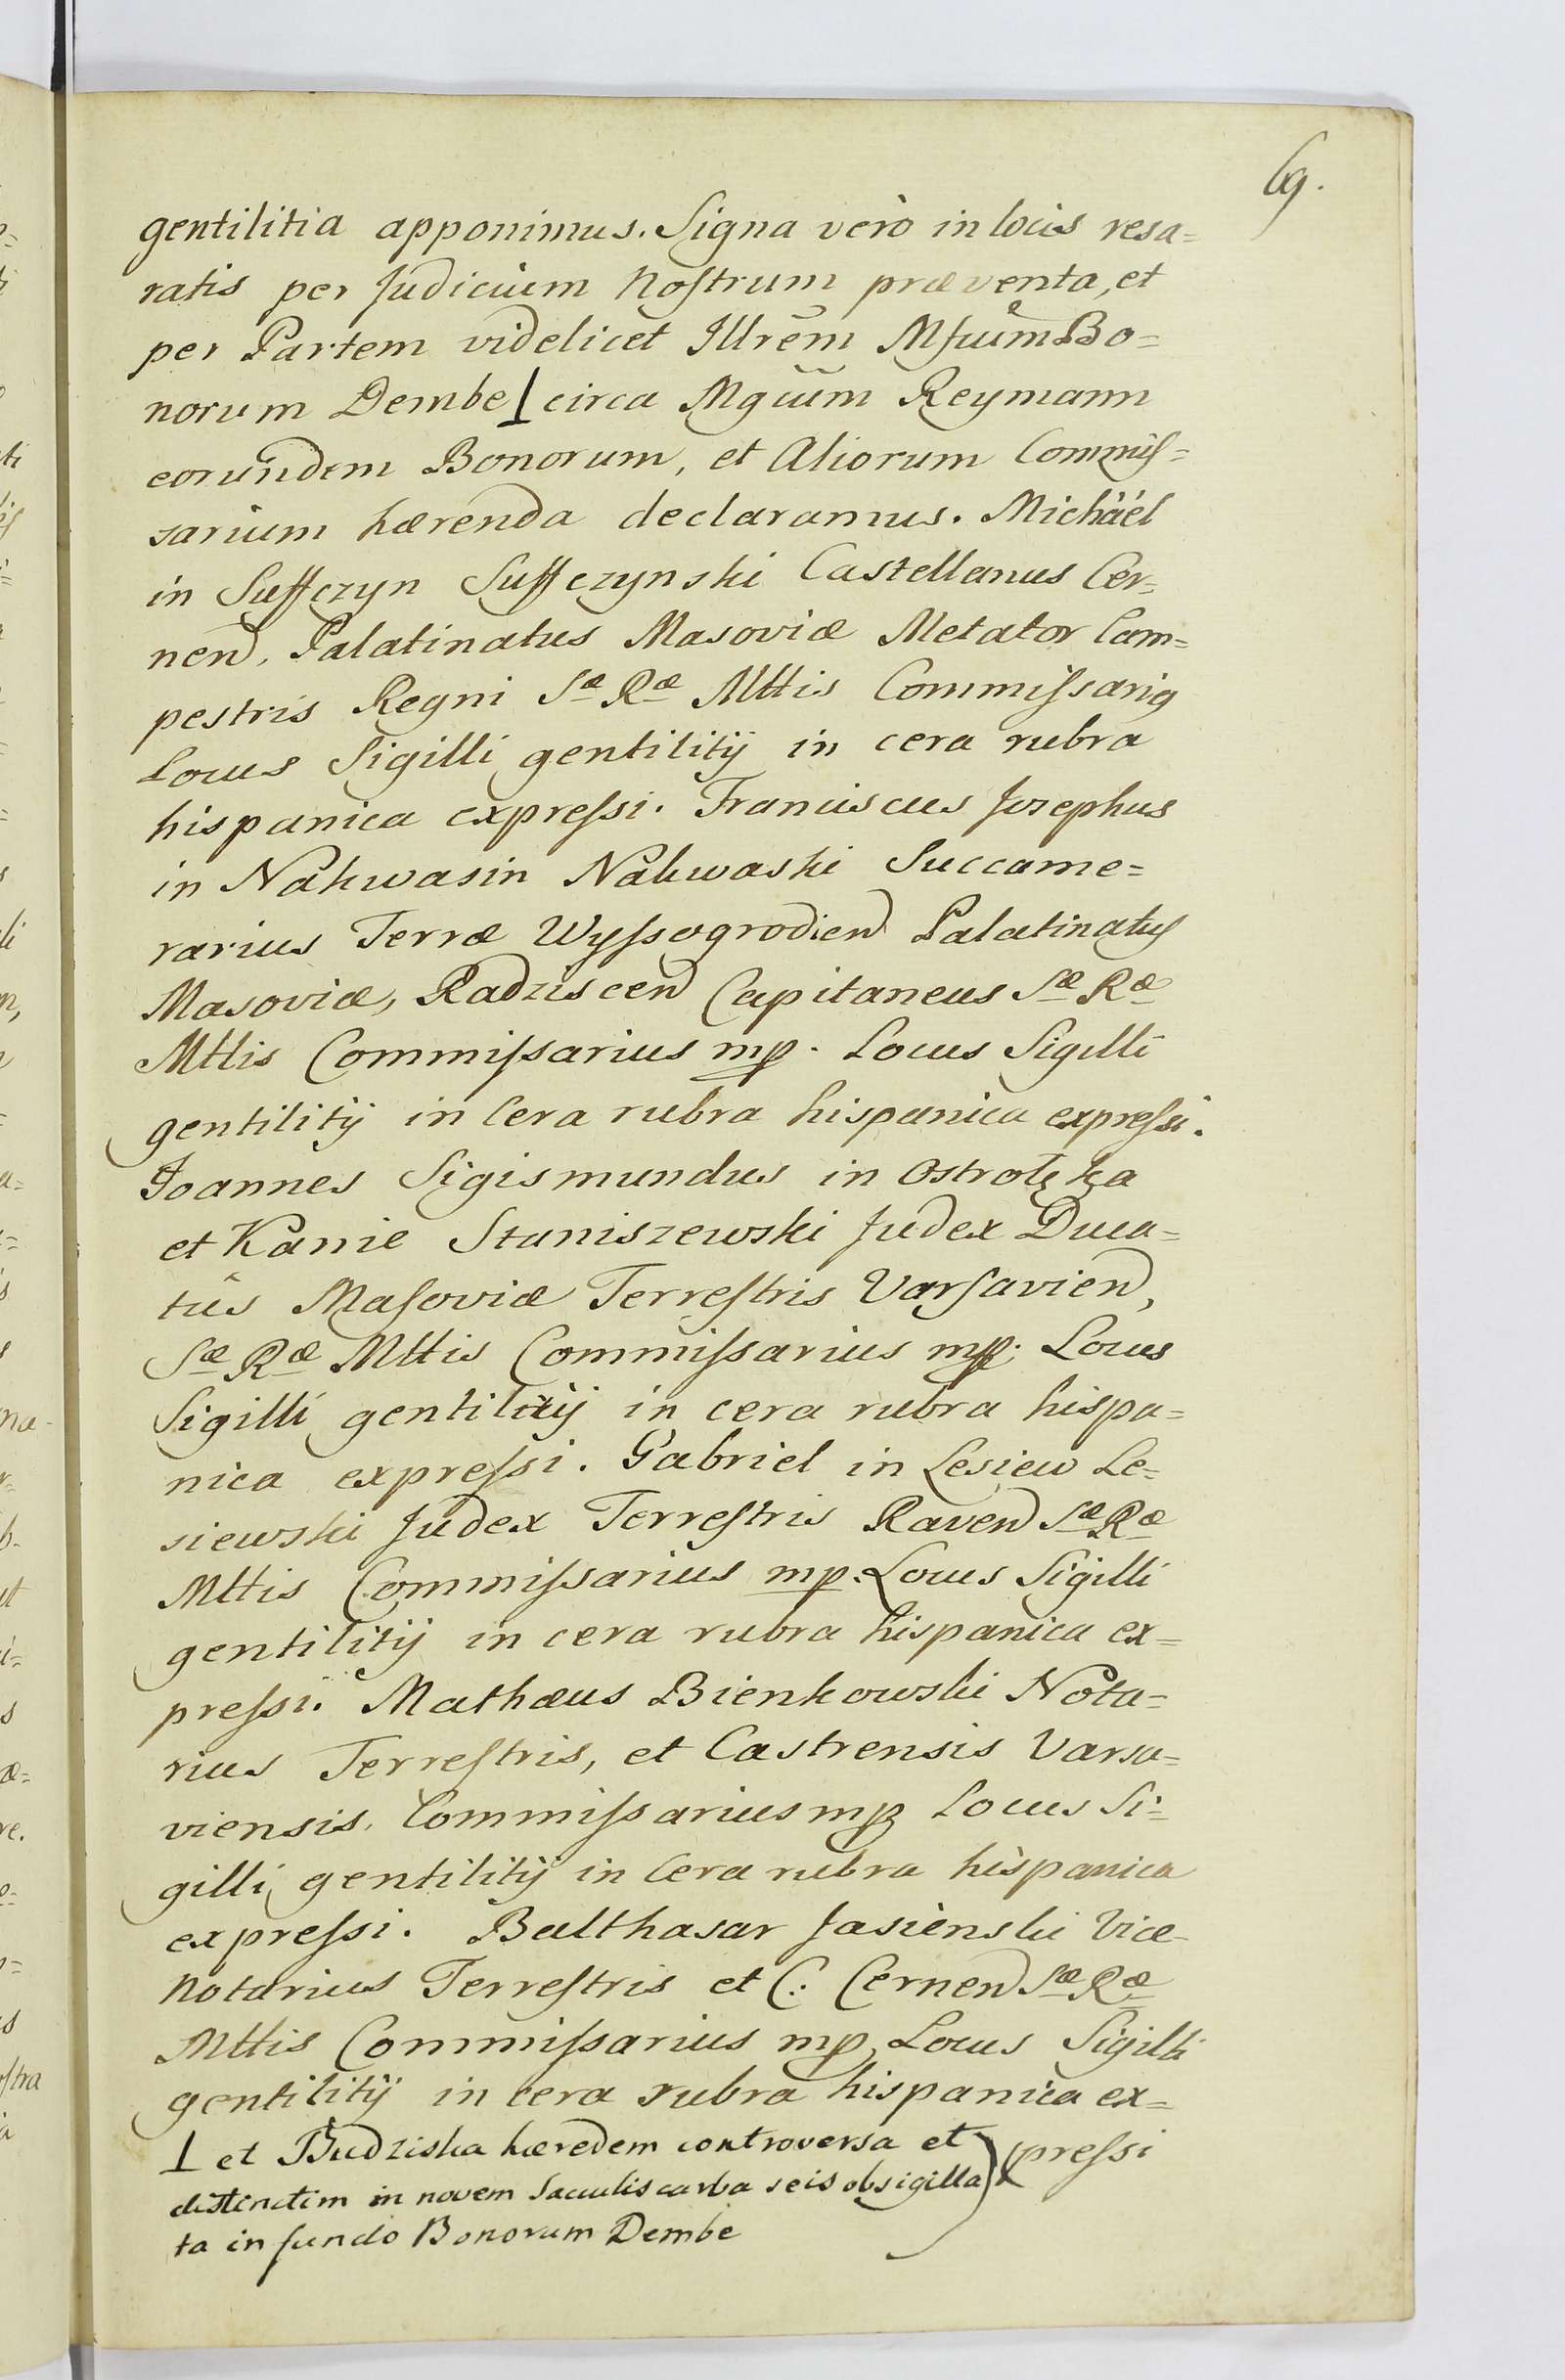 69.
gentilitia apponimus. Signa verò in locis resa=
ratis per Judicium Nostrum præventa, et
per Partem videlicet Illrem Mfcum Bo=
norum Dembe ⊥ circa Mgcum Reymann
eorundem Bonorum, et Aliorum Commis=
sarium hærenda declaramus. Michäel
in Suffczyn Suffczynski Castellanus Cer=
nen, Palatinatus Masoviæ Metator Cam=
pestris Regni Sæ Ræ Mttis Commissarig
Locus Sigilli gentilitij in cera rubra
hispanica expressi. Franciscus Josephus
in Nakwasin Nakwaski Succame=
rarius Terræ Wyssogrodien Palatinatus
Masoviæ, Radziscen Capitaneus Sæ Ræ
Mttis Commissarius mp. Locus Sigilli
gentilitij in Cera rubra hispanica expressi.
Joannes Sigismundus in Ostrołęka
et Kanie Staniszewski Judex Duca=
tûs Masoviæ Terrestris Varsavien,
Sæ Ræ Mttis Commissarius mp. Locus
Sigilli gentilitij in cera rubra hispa=
nica expressi. Gabriel in Lesiew Le=
siewski Judex Terrestris Raven Sæ Ræ
Mttis Commissarius mp. Locus Sigilli
gentilitij in cera rubra hispanica ex=
pressi. Mathæus Bienkowski Nota=
rius Terrestris, et Castrensis Varsa=
viensis, Commissarius mp Locus Si=
gilli gentilitij in Cera rubra hispanica
expressi. Balthasar Jasienski Vice
Notarius Terrestris et C. Cernen Sæ Ræ
Mttis Commissarius mp, Locus Sigilli
gentilitij in cera rubra hispanica ex=
pressi
⊥ et Budziska hæredem controversa et
distinctim in novem Sacculis carba seis obsigilla
ta in fundo Bonorum Dembe